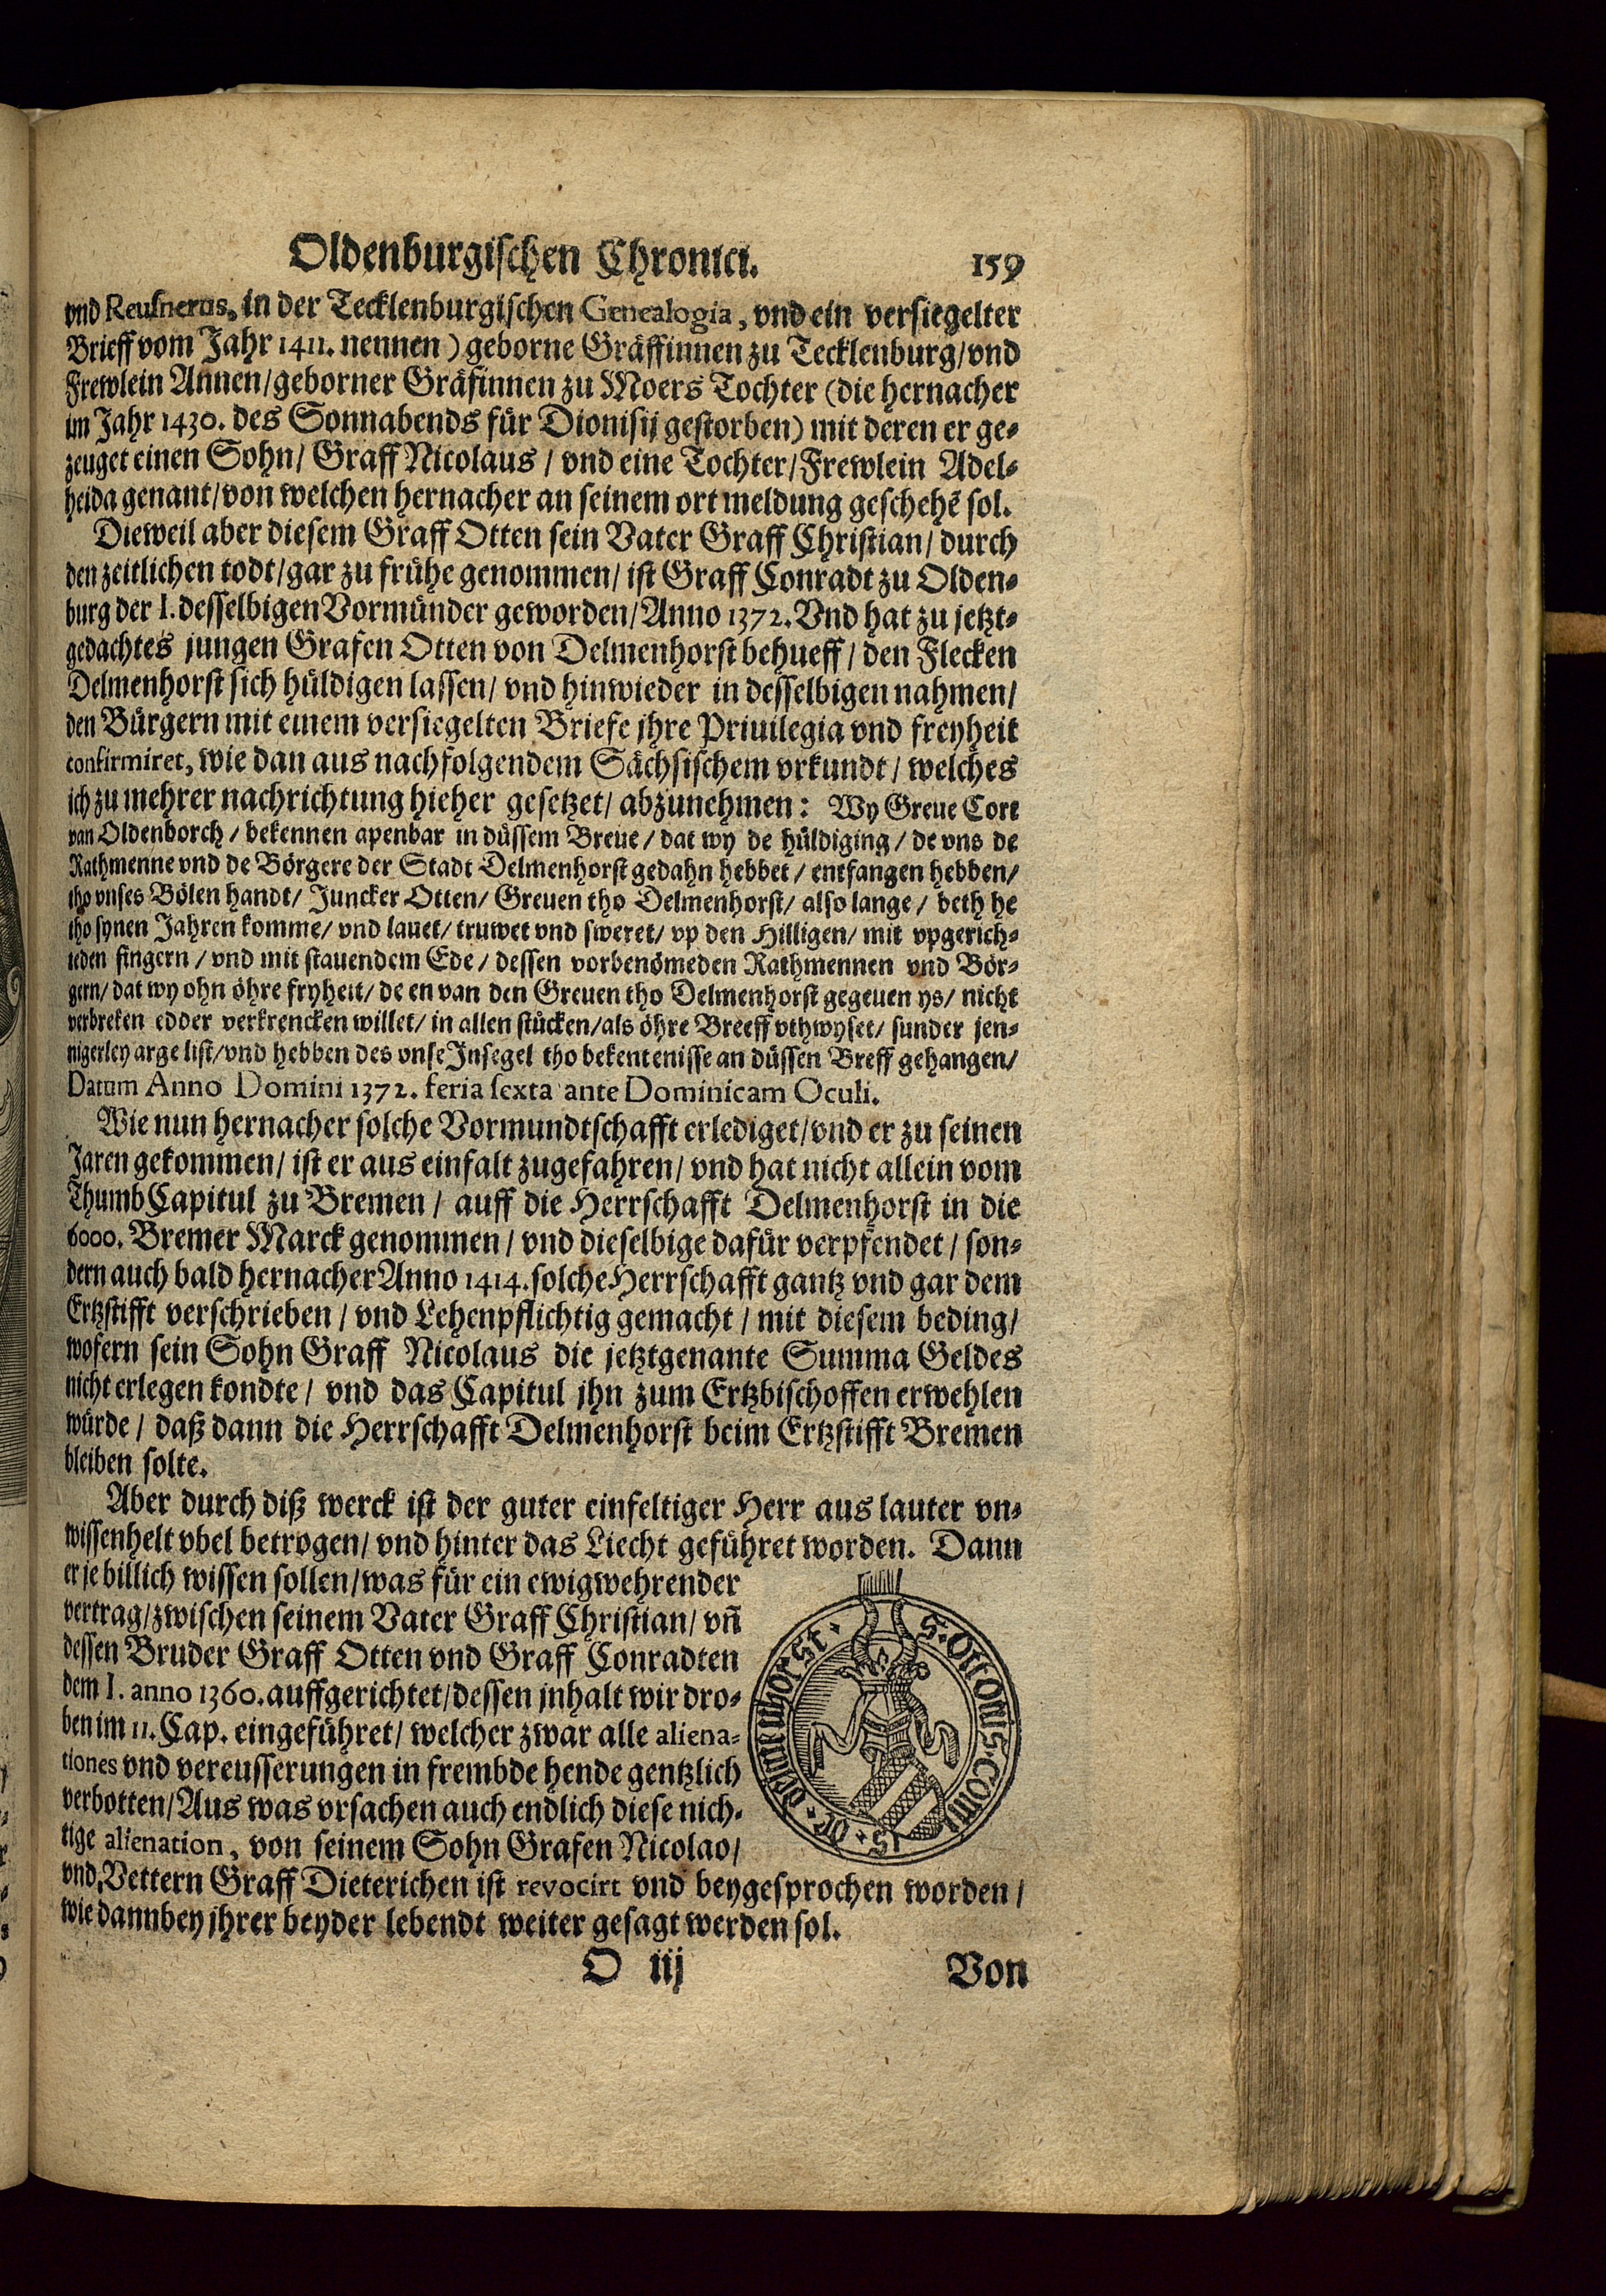 Oldenburgischen Chronici. 159
vnd Reusnerus, in der Tecklenburgischen Genealogia, vnd ein versiegelter
Brieff vom Jahr 1411. nennen) geborne Gräffinnen zu Tecklenburg/ vnd
Frewlein Annen/ geborner Gräfinnen zu Moers Tochter (die hernacher
im Jahr 1430. des Sonnabends für Dionisij gestorben) mit deren er ge-
zeuget einen Sohn/ Graff Nicolaus / vnd eine Tochter/ Frewlein Adel-
heida genant/ von welchen hernacher an seinem ort meldung geschehẽ sol.
Dieweil aber diesem Graff Otten sein Vater Graff Christian/ durch
den zeitlichen todt/ gar zu frühe genommen/ ist Graff Conradt zu Olden-
burg der I. desselbigen Vormünder geworden/ Anno 1372. Vnd hat zu jetzt-
gedachtes jungen Grafen Otten von Delmenhorst behueff / den Flecken
Delmenhorst sich hüldigen lassen/ vnd hinwieder in desselbigen nahmen/
den Bürgern mit einem versiegelten Briefe jhre Priuilegia vnd freyheit
confirmiret, wie dan aus nachfolgendem Sächsischem vrkundt / welches
ich zu mehrer nachrichtung hieher gesetzet/ abzunehmen: Wy Greue Cort
van Oldenborch / bekennen apenbar in düssem Breue / dat wy de hüldiging / de vns de
Rathmenne vnd de Börgere der Stadt Delmenhorst gedahn hebbet / entfangen hebben/
tho vnses Bölen handt/ Juncker Otten/ Greuen tho Delmenhorst/ also lange / beth he
tho synen Jahren komme/ vnd lauet/ truwet vnd sweret/ vp den Hilligen/ mit vpgerich-
teden fingern / vnd mit stauendem Ede / dessen vorbenömeden Rathmennen vnd Bör-
gern/ dat wy ohn öhre fryheit/ de en van den Greuen tho Delmenhorst gegeuen ys/ nicht
verbreken edder verkrencken willet/ in allen stücken/ als öhre Breeff vthwyset/ sunder jen-
nigerley arge list/ vnd hebben des vnse Insegel tho bekentenisse an düssen Breff gehangen/
Datum Anno Domini 1372. feria sexta ante Dominicam Oculi.
Wie nun hernacher solche Vormundtschafft erlediget/ vnd er zu seinen
Jaren gekommen/ ist er aus einfalt zugefahren/ vnd hat nicht allein vom
ThumbCapitul zu Bremen / auff die Herrschafft Delmenhorst in die
6000. Bremer Marck genommen / vnd dieselbige dafür verpfendet / son-
dern auch bald hernacher Anno 1414. solche Herrschafft gantz vnd gar dem
Ertzstifft verschrieben / vnd Lehenpflichtig gemacht / mit diesem beding/
wofern sein Sohn Graff Nicolaus die jetztgenante Summa Geldes
nicht erlegen kondte/ vnd das Capitul jhn zum Ertzbischoffen erwehlen
würde / daß dann die Herrschafft Delmenhorst beim Ertzstifft Bremen
bleiben solte.
Aber durch diß werck ist der guter einfeltiger Herr aus lauter vn-
wissenheit vbel betrogen/ vnd hinter das Liecht geführet worden. Dann
er je billich wissen sollen/ was für ein ewigwehrender
vertrag/ zwischen seinem Vater Graff Christian/ vñ
dessen Bruder Graff Otten vnd Graff Conradten
dem I. anno 1360. auffgerichtet/ dessen jnhalt wir dro-
ben im 11. Cap. eingeführet/ welcher zwar alle aliena-
tiones vnd vereusserungen in frembde hende gentzlich
verbotten/ Aus was vrsachen auch endlich diese nich-
tige alienation, von seinem Sohn Grafen Nicolao/
vnd Vettern Graff Dieterichen ist revocirt vnd beygesprochen worden /
wie dann bey jhrer beyder lebendt weiter gesagt werden sol.
s. ottonis. comitis. de. delmenhorst.
O iij Von